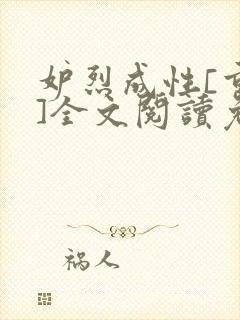 妒烈成性[重
]全文閱讀免
祸人